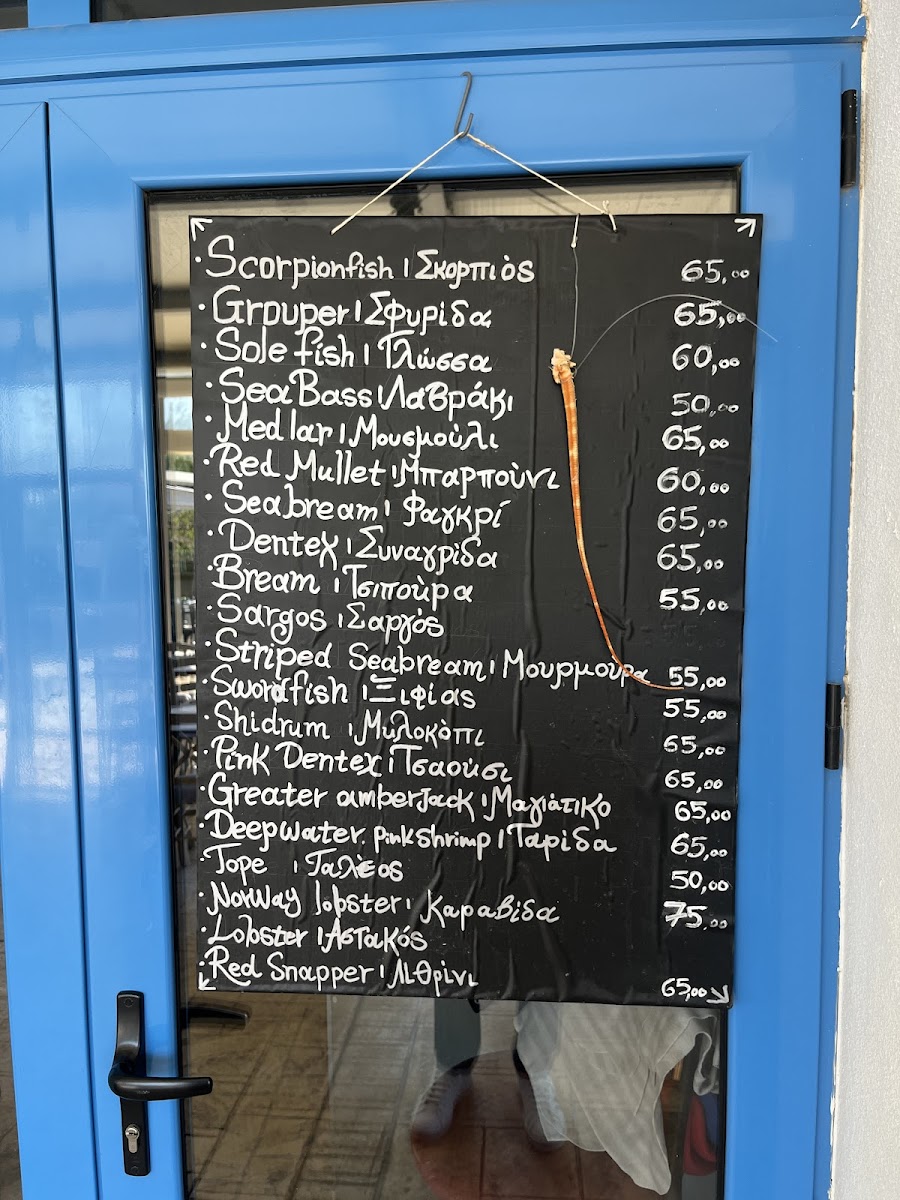 ·Scorpionfish | Σκορπιὸς 65,00
·Grouper | Σφυρίδα 65,00
·Sole fish | Γλώσσα 60,00
·Sea Bass | Λαβράκι 50,00
·Medlar | Μουσμούλι 65,00
·Red Mullet | Μπαρπούνι 60,00
·Seabream | Φαγκρί 65,00
·Dentex | Συναγρίδα 65,00
·Bream | Τσιπούρα 55,00
·Sargos | Σαργός
·Striped Seabream | Μουρμούρα 55,00
·Swordfish | Ξιφίας 55,00
·Shidrum | Μυλοκόπι 65,00
·Pink Dentex | Τσαούσι 65,00
·Greater amberjack | Μαγιάτικο 65,00
·Deepwater. pink shrimp | Γαρίδα 65,00
·Tope | Γαλέος 50,00
·Norway lobster | Καραβίδα 75,00
·Lobster | Αστακός
·Red Snapper | Λιθρίνι 65,00